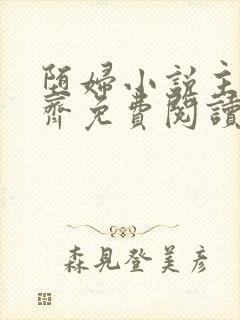 陋婦小說主
齊免費閱讀
森見登美彥